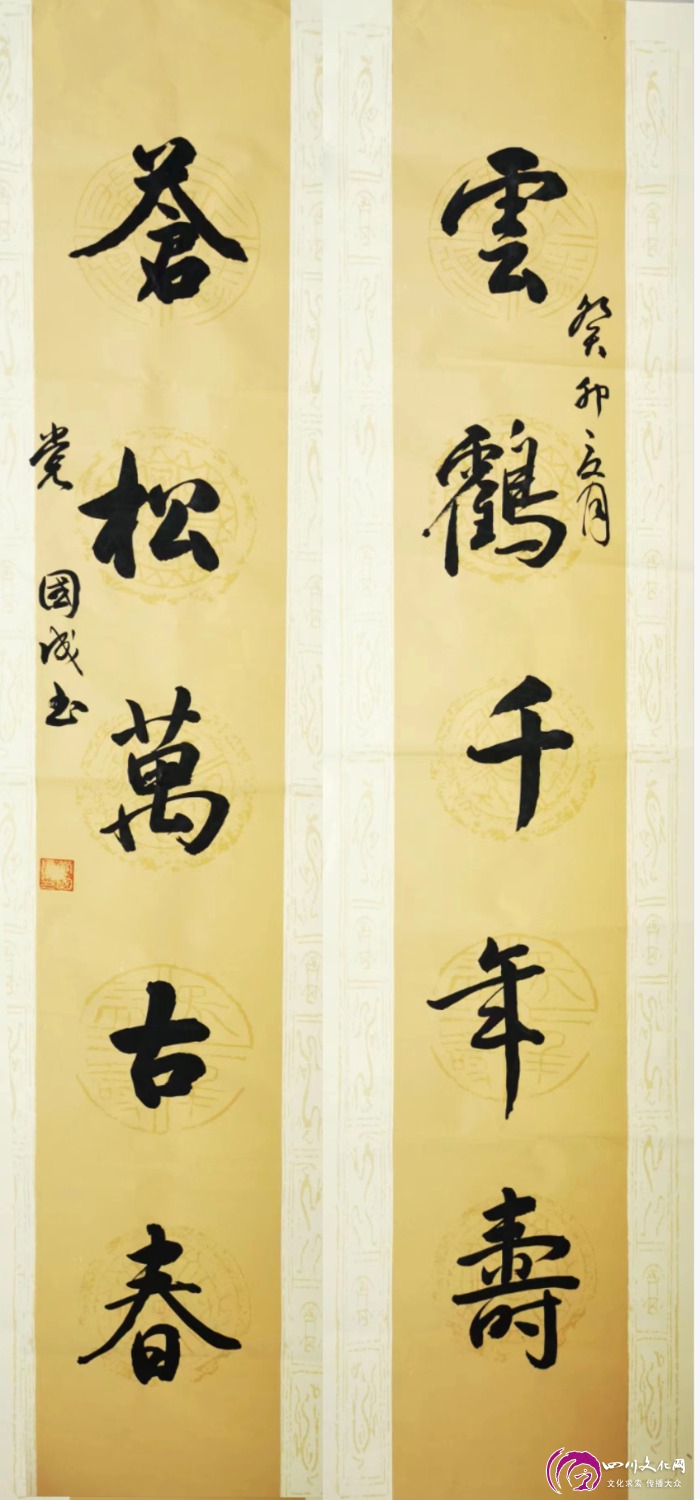 雲鶴千年壽
癸卯月
蒼松萬古春
党國成书
四川文化网
文化求索 传播大众